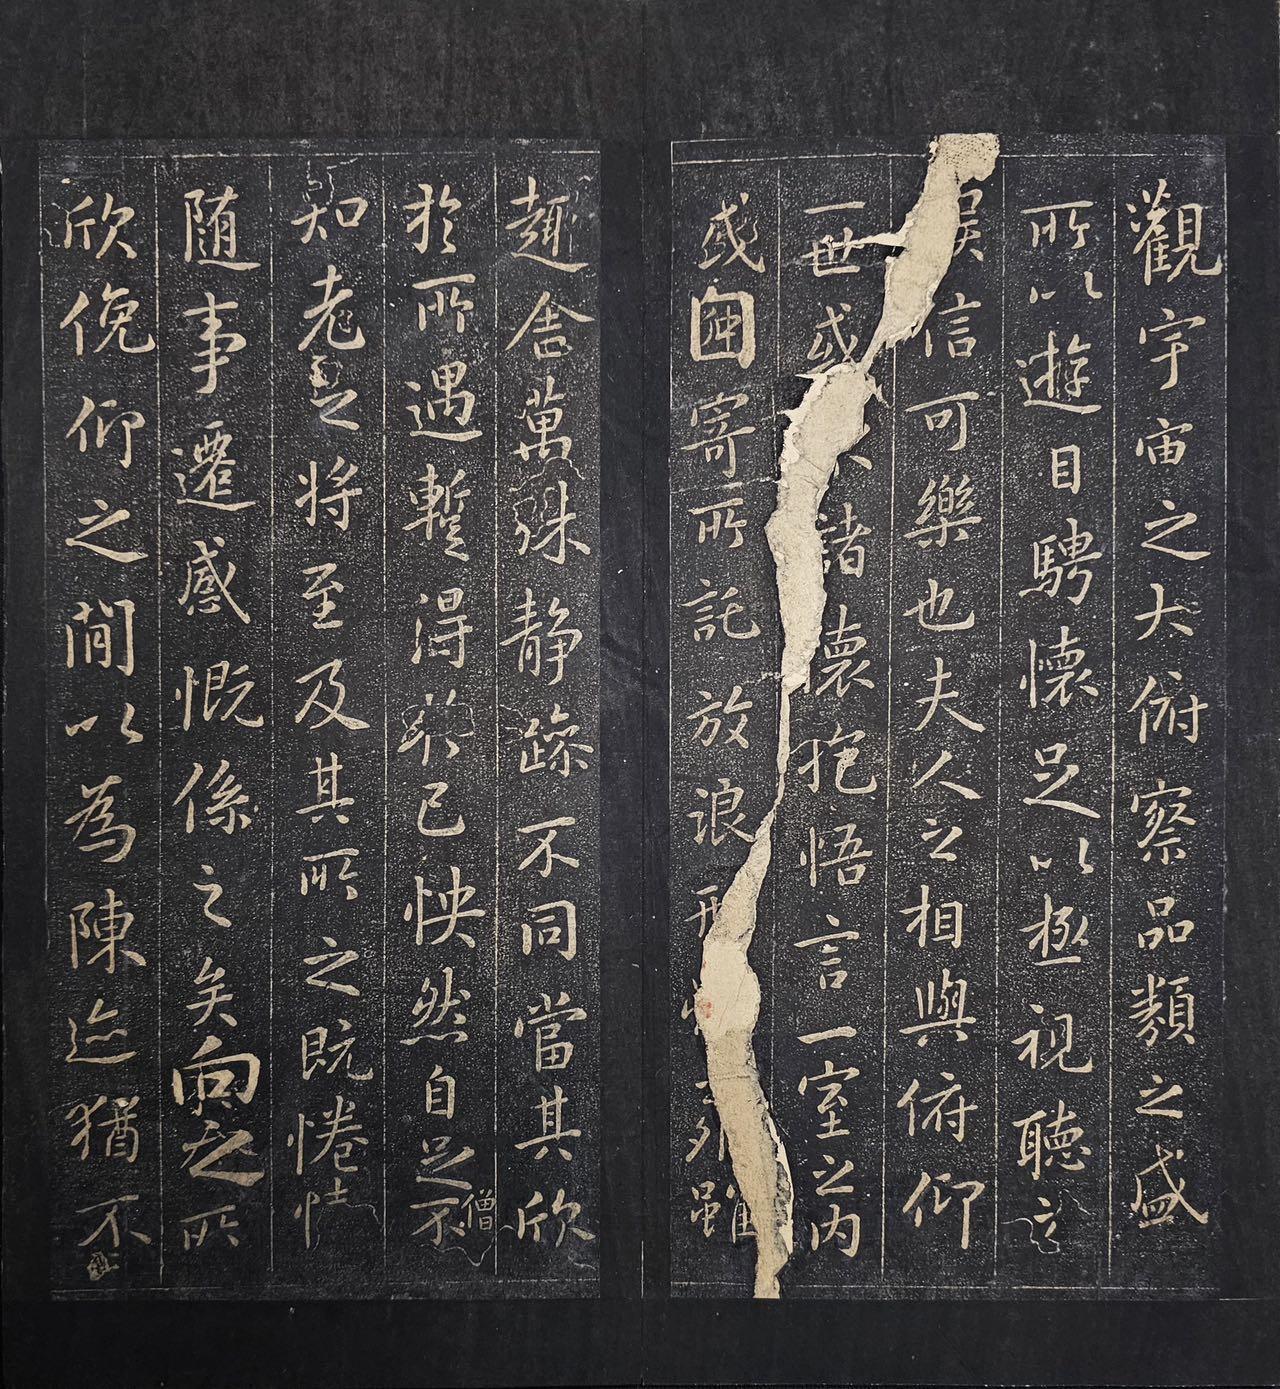 觀宇宙之大俯察品類之盛
所以遊目騁懷足以極視聽之
娛信可樂也夫人之相與俯仰
一世或諸懷抱悟言一室之內
或因寄所託放浪形外雖
趣舍萬殊静躁不同當其欣
於所遇暫得於己怏然自足不
僧
知老之將至及其所之既惓情
随事遷感慨係之矣向之所
欣俛仰之閒以為陳迹猶不